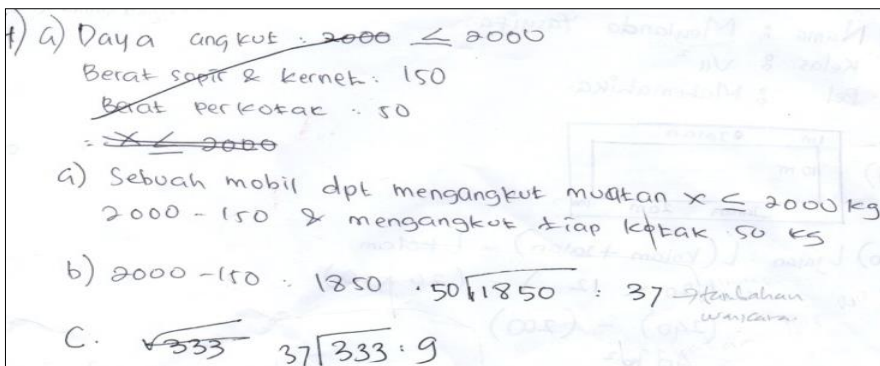 1) a) Daya angkut : 2000 ≤ 2000
Berat sopir & kernet : 150
Berat perkotak : 50
= x ≤ 2000
a) Sebuah mobil dpt mengangkut muatan x ≤ 2000 kg
2000 - 150 & mengangkut tiap kotak 50 kg
b) 2000 - 150 : 1850 . 50√1850 : 37 → tambahan
wawancara.
C. √333 37√333 : 9